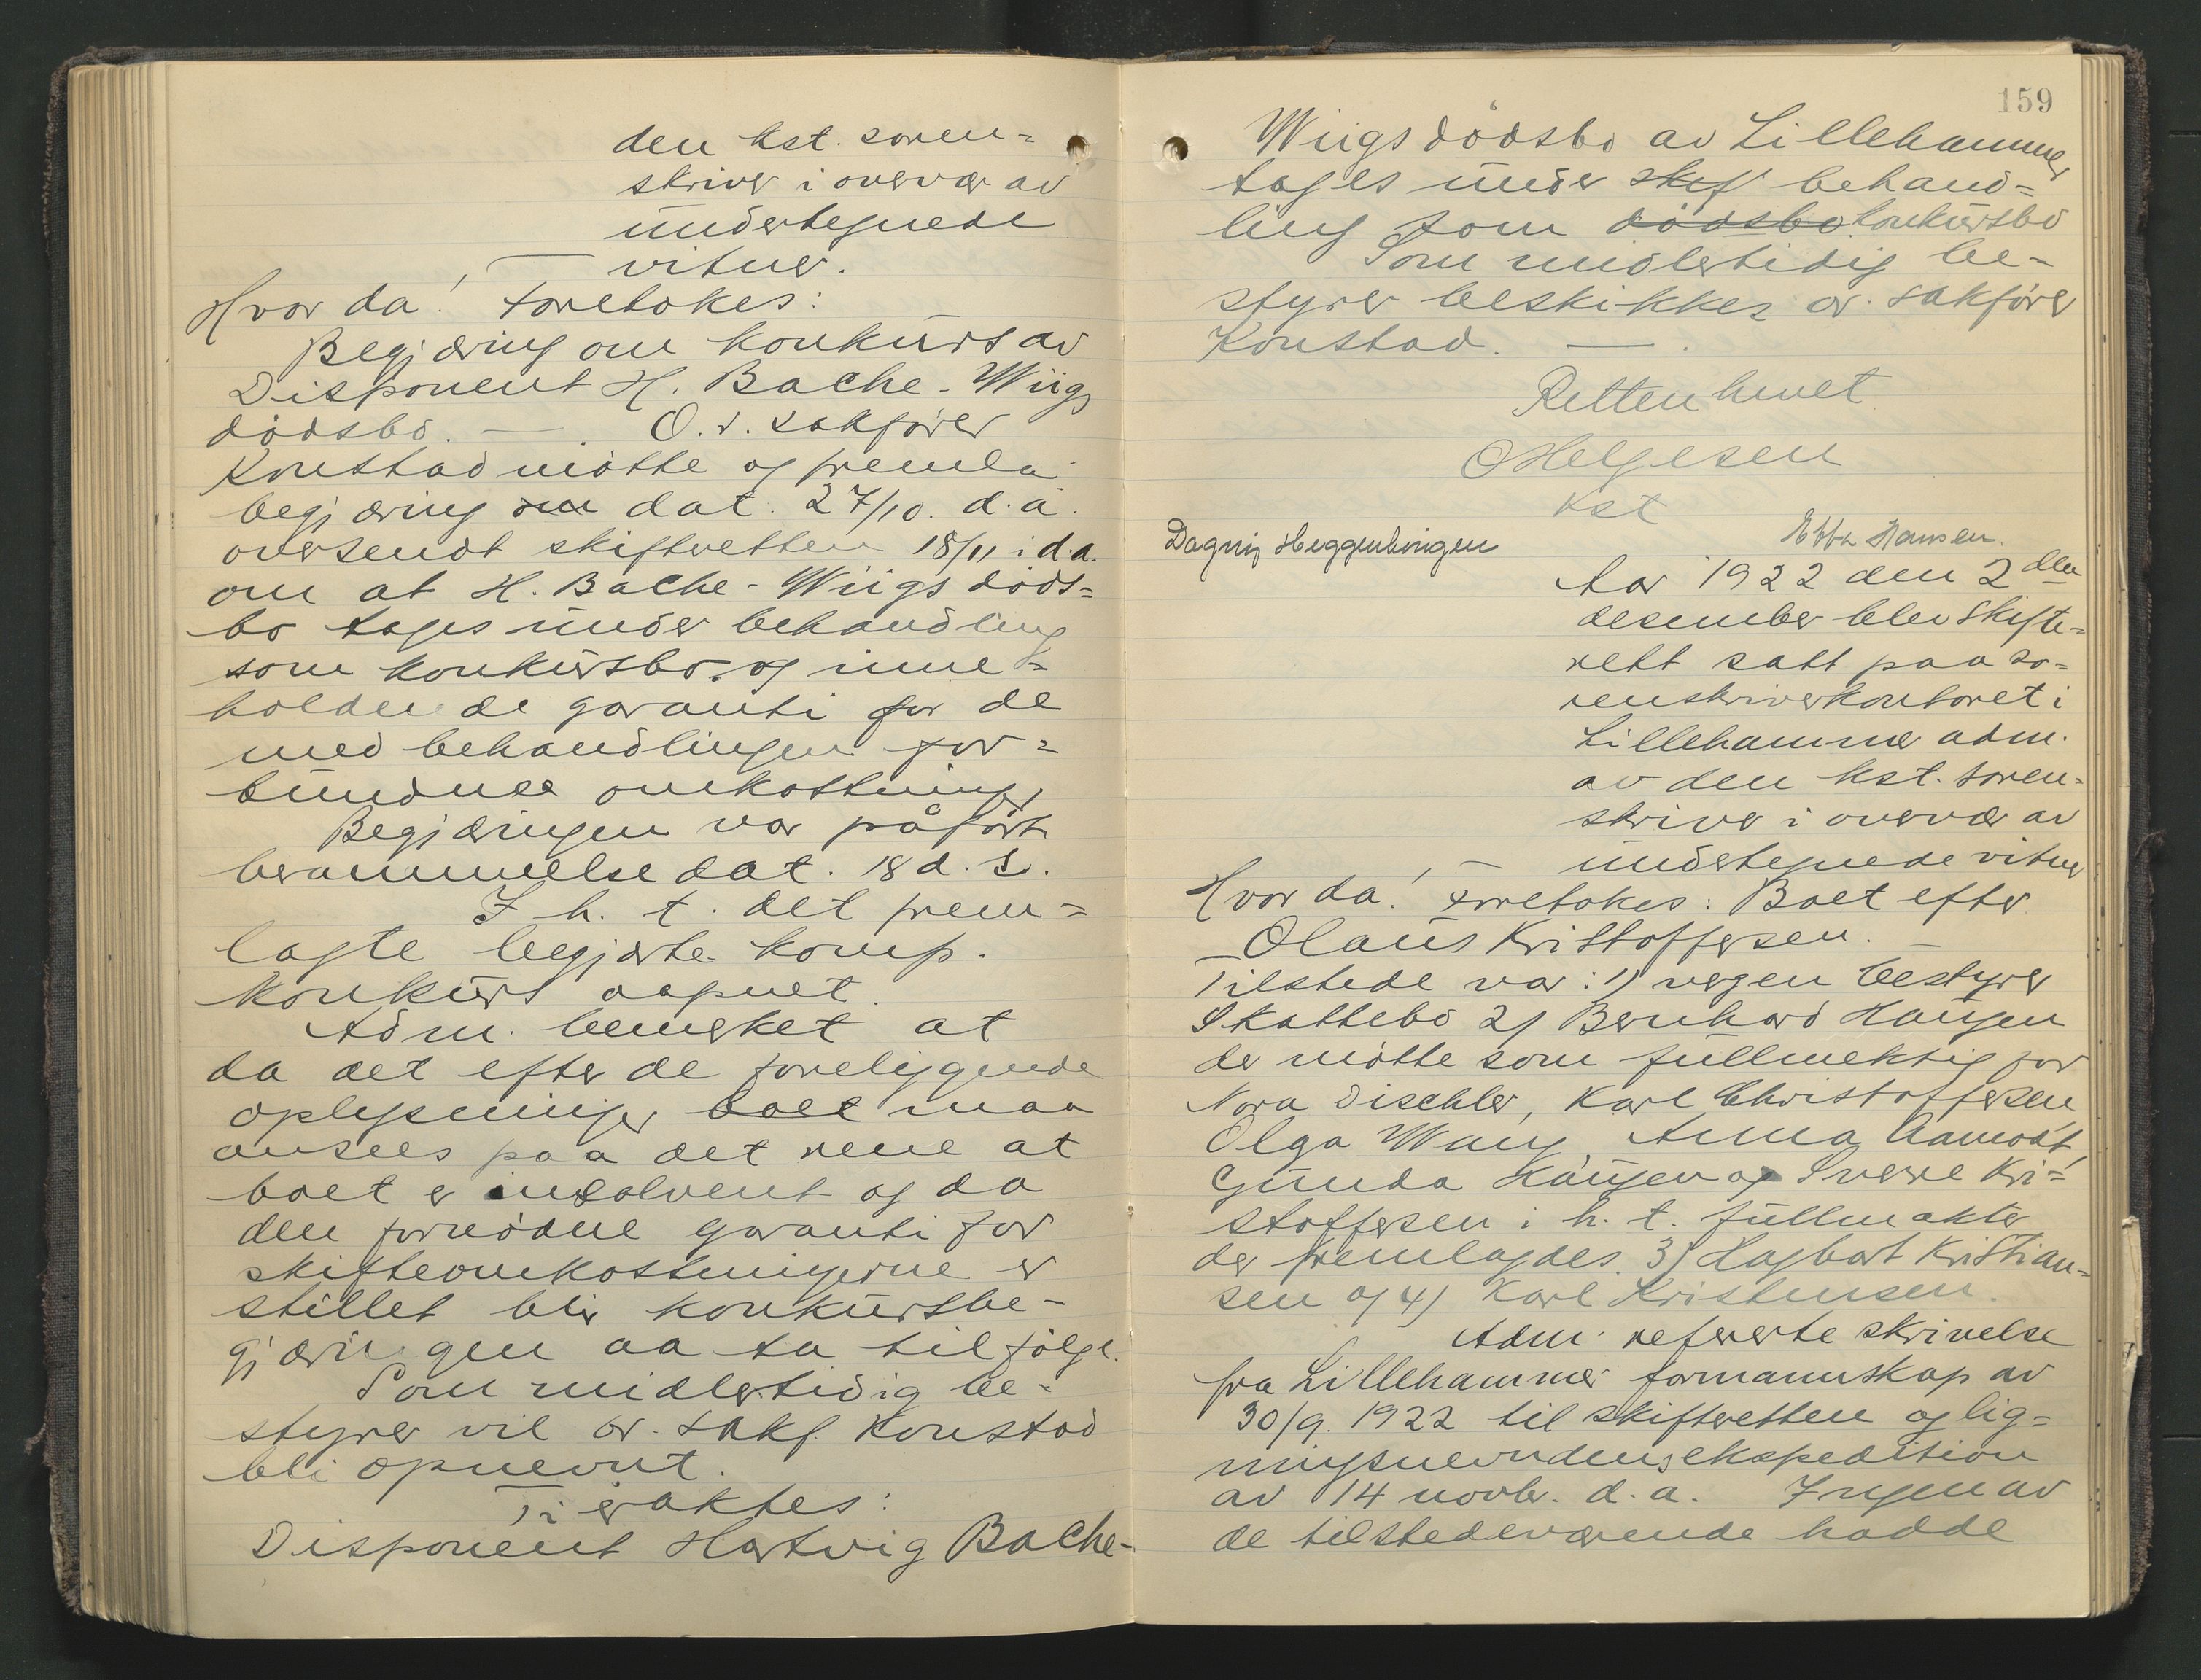 den kst. soren=
skriver i overvær av
undertegnede
vitner.
Hvor da! Foretokes:
Begjæring om konkurs av
Disponent H. Bache-Wiigs
dødsbo. — . O.r. sakfører
Konstad møtte og fremla
begjæring om dat. 27/10. d.å.
oversendt skifteretten 18/11 i d.a.
om at H. Bache-Wiigs døds=
bo tages under behandling
som konkursbo og inne=
holdende garanti for de
med behandlingen for=
bundne omkostninger
Begjæringen var påført
berammelse dat. 18 d.s.
I h. t. det frem=
lagte begjærte komp.
konkurs aapnet.
Adm. bemerket at
da det efter de foreliggende
oplysninger boet maa
ansees paa det rene at
boet er insolvent og da
den fornødne garanti for
skifteomkostningerne er
stillet blir konkursbe-
gjæringen aa ta tilfølge.
Som midlertidig be=
styrer vil or. sakf. Konstad
bli opnevnt.
Ti eraktes:
Disponent Hartvig Bache-
159
Wiigs dødsbo av Lillehammer
tages under skif behand=
ling som dødsbo konkursbo
Som midlertidig be-
styrer beskikkes or. sakfører
Konstad. — .
Retten hevet
O Helgesen
kst
Dagny Heggenhougen
Ebba Hansen.
Aar 1922 den 2den
desember blev skifte=
rett satt paa so=
renskriverkontoret i
Lillehammer adm.
av den kst. soren=
skriver i overvær av
undertegnede vitner
Hvor da! Foretokes: Boet efter
Olaus Kristoffersen. —
Tilstede var: 1) vergen bestyrer
Skattebo 2) Bernhard Haugen
der møtte som fullmektig for
Nora Dischler, Karl Christoffersen,
Olga Wang, Anna Aamodt,
Gunda Haugen og Sverre Kri=
stoffersen i h. t. fullmakter
der fremlagdes. 3) Hagbart Kristian=
sen og 4) Karl Kristensen.
Adm. refererte skrivelse
fra Lillehammer formannskap av
30/9. 1922 til skifteretten og lig=
ningsnevndens ekspedition
av 14 novbr. d.a. Ingen av
de tilstedeværende hadde